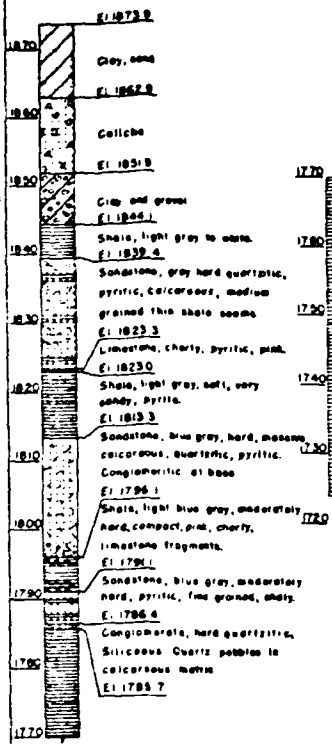 El. 1873.9
1870
Clay, sand
El. 1862.9
1860
Caliche
El 1851.9
1850
Clay and gravel
El 1844.1
1840
Shale, light gray to white.
El 1839.4
Sandstone, gray hard quartzitic,
pyritic, calcareous, medium
grained thin shale seams
1830
El 1823.3
Limestone, cherty, pyritic, pink.
El 1823.0
1820
Shale, light gray, soft, very
sandy, pyrite.
El 1813.3
1810
Sandstone, blue gray, hard, massive
calcareous, quartzitic, pyritic.
Conglomeritic at base
1800
El 1796.1
Shale, light blue gray, moderately
hard, compact, pink, cherty,
limestone fragments.
El 1791.1
1790
Sandstone, blue gray, moderately
hard, pyritic, fine grained, shaly.
El 1786.4
Conglomerate, hard quartzitic,
Siliceous Quartz pebbles in
calcareous matrix
El 1785.7
1780
1770
1770
1760
1750
1740
1730
1720